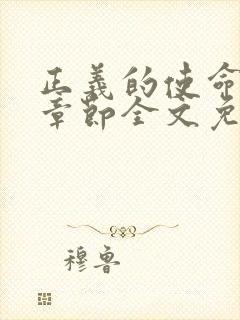 正義的使命
章節全文免
穆魯